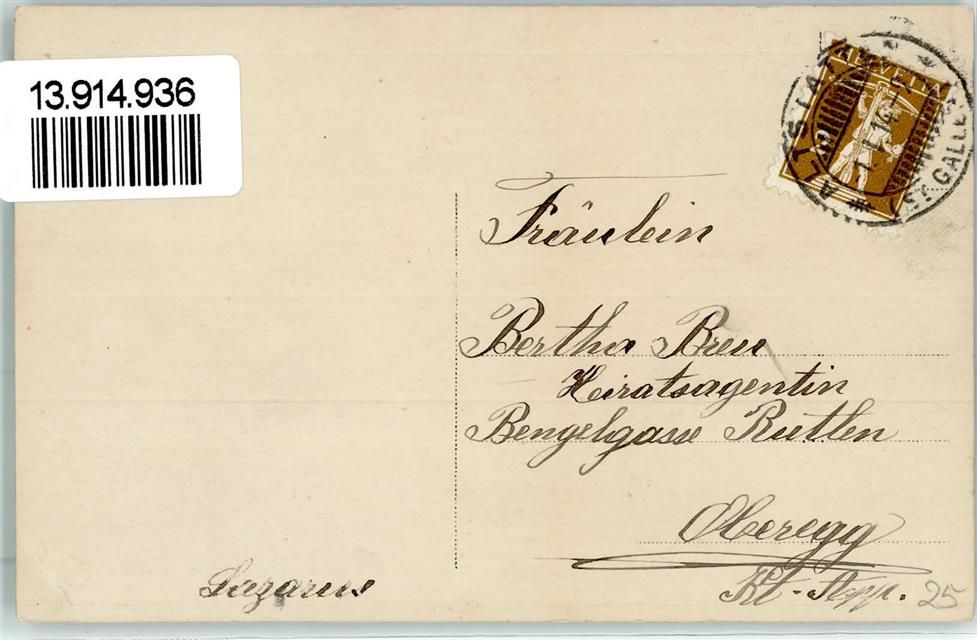 13.914.936
HELVETIA
ALTSTÄTTEN
(ST. GALLEN)
Fräulein
Bertha Breu
Heiratsagentin
Bengelgasse Rutlen
Oberegg
Kt. App.
Lazarus
25